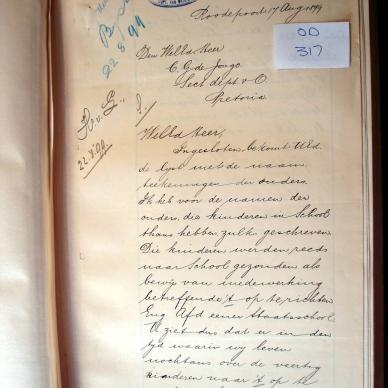 Roodepoort 17 Aug 1899
OD
317
22/8/99
Den WelEd Heer
C. G. de Jonge
Sect dept v O
Pretoria
WelEd Heer,
22.8.99
Ingesloten bekomt UEd.
de lyst met de naam
teekeningen der ouders.
Ik heb voor de namen der
ouders, die kinderen in School
thans hebben, zulks geschreven.
Die kinderen werden reeds
naar School gezonden als
bewys van medewerking
betreffende 't op te richten
Eng Afd eener Staatsschool.
U ziet dus dat er in den
tyd waarin wy leven
nochtans over de veertig
kinderen naar 't op te